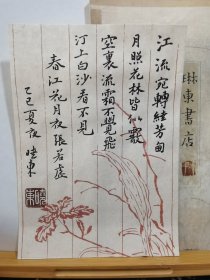 江流宛轉繞芳甸
月照花林皆似霰
空裏流霜不覺飛
汀上白沙看不見
春江花月夜張若虛
乙巳夏夜曉東
琳東書店